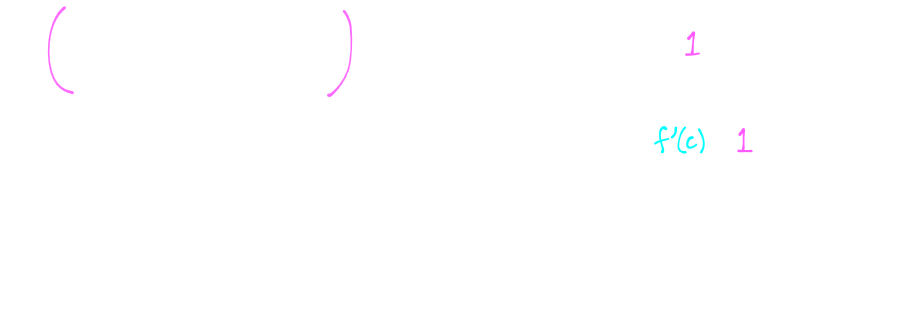 ( ) 1
f'(c) 1